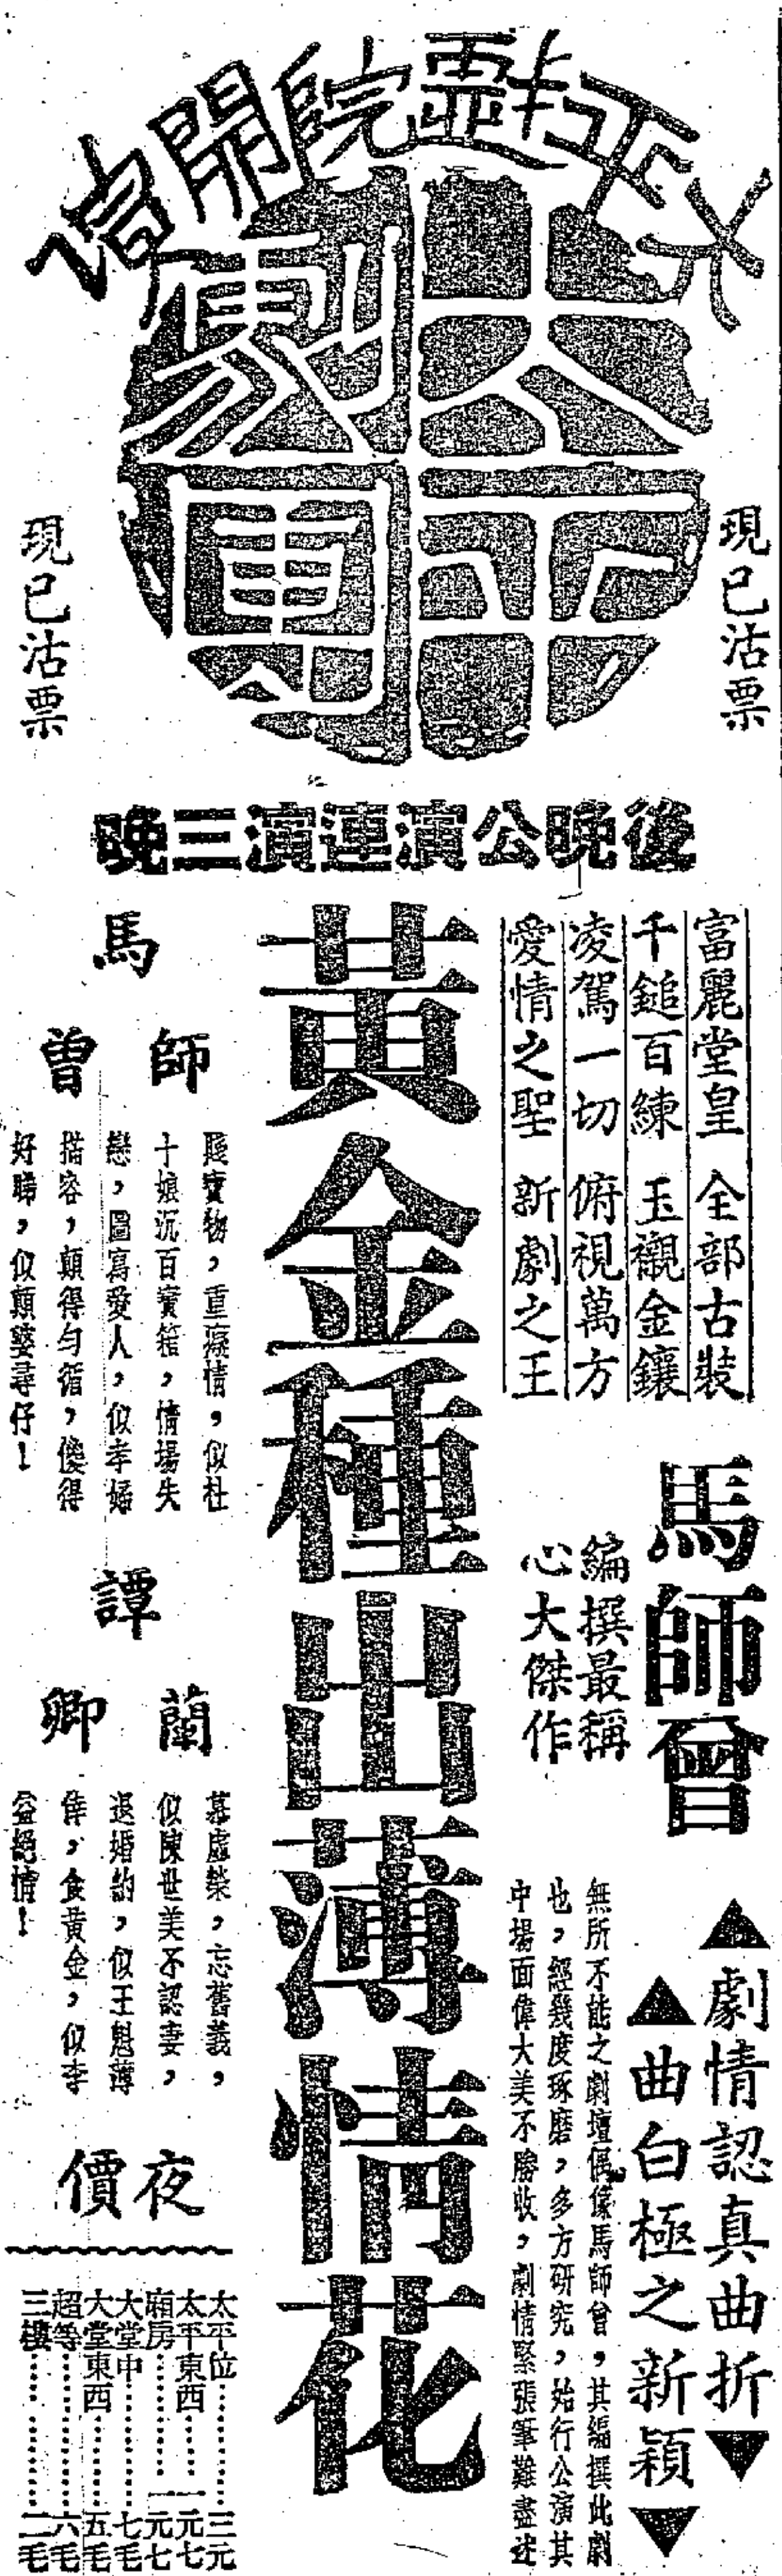 太平戲院開信
太平劇團
現已沽票
現已沽票
後晚公演連演三晚
富麗堂皇　全部古裝
千鎚百練　玉襯金鑲
凌駕一切　俯視萬方
愛情之聖　新劇之王
馬師曾
編撰最稱
心大傑作
▲劇情認真曲折▼
▲曲白極之新穎▼
無所不能之劇壇偶像馬師曾，其編撰此劇
也，經幾度琢磨，多方研究，始行公演其
中場面偉大美不勝收，劇情緊張筆難盡述
黃金種出薄情花
馬師曾
賤寶物，重癡情，似杜
十娘沉百寶箱，情場失
戀，圖寫愛人，似孝婦
描容，顛得勻循，傻得
好睇，似顛婆尋仔！
譚蘭卿
慕虛榮，忘舊義，
似陳世美不認妻，
退婚約，似王魁薄
倖，食黃金，似李
益絕情！
夜價
太平位………三元
太平東西……一元七
廂房…………一元七
大堂中………七毛
大堂東西……五毛
超等…………六毛
三樓…………二毛